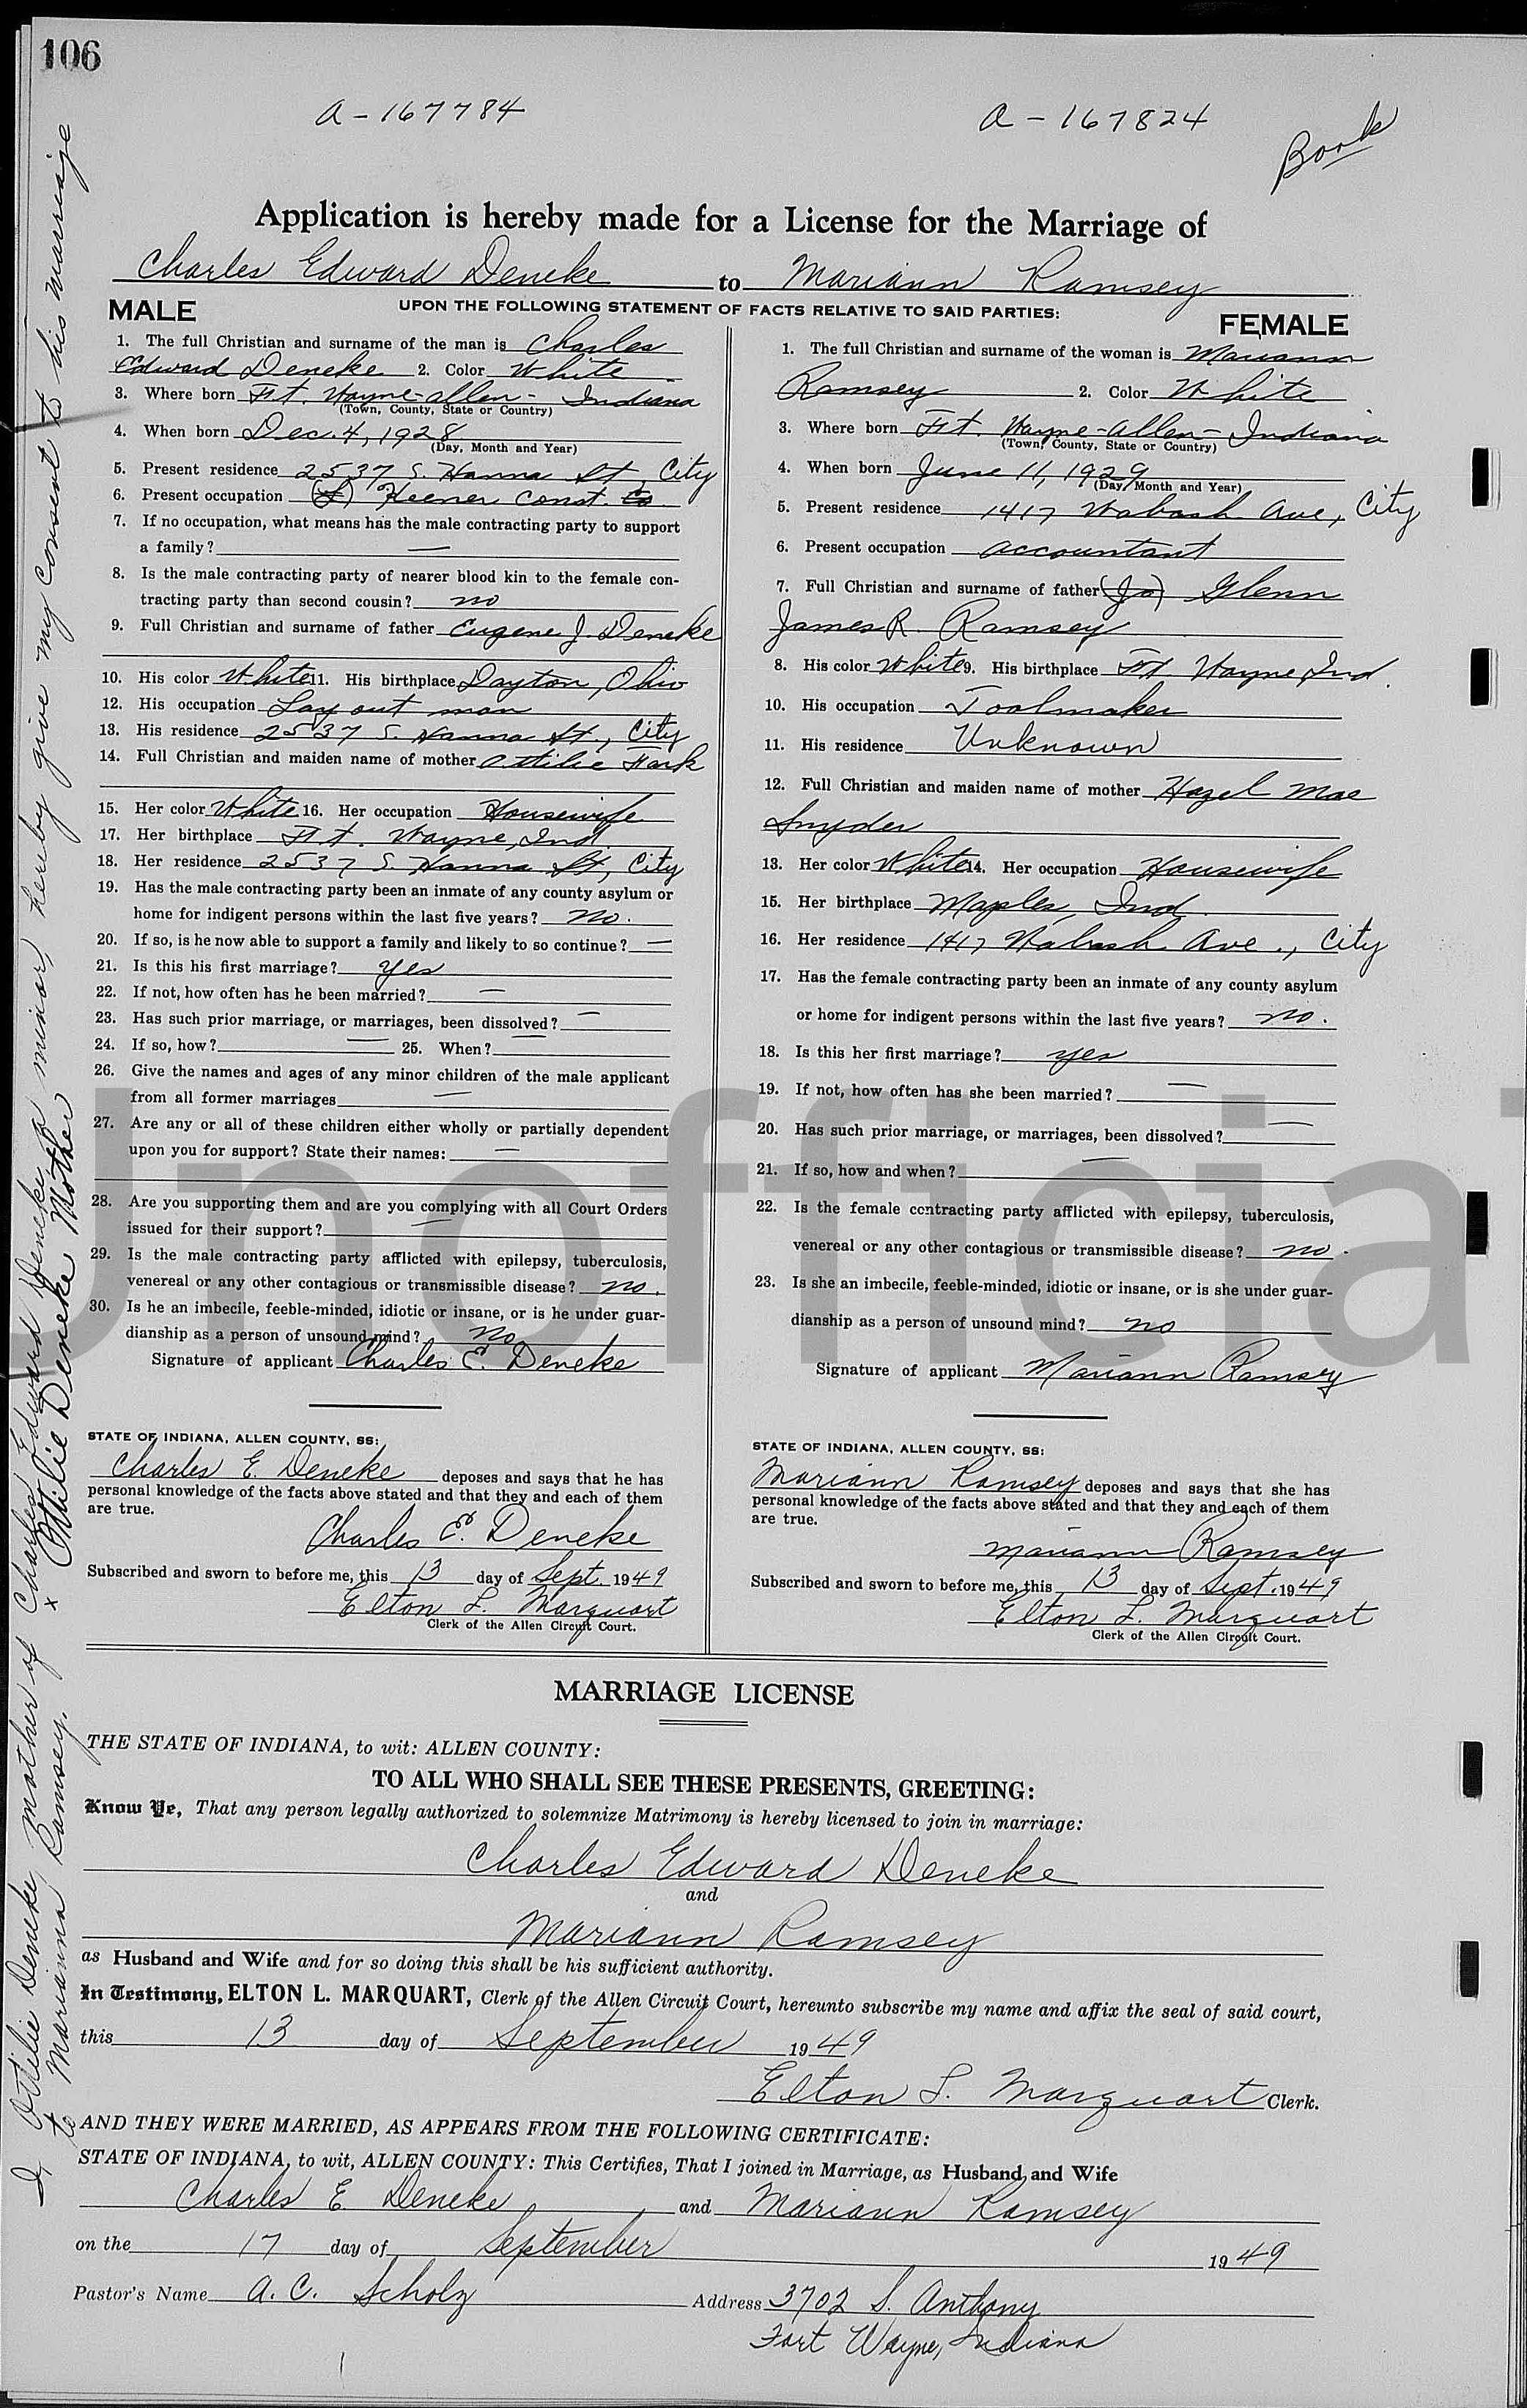 106
A-167784
A-167824
Book
Application is hereby made for a License for the Marriage of
Charles Edward Deneke to Mariann Ramsey
UPON THE FOLLOWING STATEMENT OF FACTS RELATIVE TO SAID PARTIES:
MALE
1. The full Christian and surname of the man is Charles
Edward Deneke 2. Color White
3. Where born Ft. Wayne-Allen-Indiana
(Town, County, State or Country)
4. When born Dec. 4, 1928
(Day, Month and Year)
5. Present residence 2537 S. Hanna St, City
6. Present occupation Keener Const. Co.
7. If no occupation, what means has the male contracting party to support
a family? —
8. Is the male contracting party of nearer blood kin to the female con-
tracting party than second cousin? no
9. Full Christian and surname of father Eugene J. Deneke
10. His color White 11. His birthplace Dayton, Ohio
12. His occupation Lay out man
13. His residence 2537 S. Hanna St., City
14. Full Christian and maiden name of mother Ottilie Fark
15. Her color White 16. Her occupation Housewife
17. Her birthplace Ft. Wayne, Ind.
18. Her residence 2537 S. Hanna St, City
19. Has the male contracting party been an inmate of any county asylum or
home for indigent persons within the last five years? no.
20. If so, is he now able to support a family and likely to so continue? —
21. Is this his first marriage? yes
22. If not, how often has he been married? —
23. Has such prior marriage, or marriages, been dissolved? —
24. If so, how? — 25. When? —
26. Give the names and ages of any minor children of the male applicant
from all former marriages —
27. Are any or all of these children either wholly or partially dependent
upon you for support? State their names: —
28. Are you supporting them and are you complying with all Court Orders
issued for their support? —
29. Is the male contracting party afflicted with epilepsy, tuberculosis,
venereal or any other contagious or transmissible disease? no.
30. Is he an imbecile, feeble-minded, idiotic or insane, or is he under guar-
dianship as a person of unsound mind? no
Signature of applicant Charles E. Deneke
STATE OF INDIANA, ALLEN COUNTY, SS:
Charles E. Deneke deposes and says that he has
personal knowledge of the facts above stated and that they and each of them
are true.
Charles E. Deneke
Subscribed and sworn to before me, this 13 day of Sept. 1949
Elton L. Marquart
Clerk of the Allen Circuit Court.
FEMALE
1. The full Christian and surname of the woman is Mariann
Ramsey 2. Color White
3. Where born Ft. Wayne-Allen-Indiana
(Town, County, State or Country)
4. When born June 11, 1929
(Day, Month and Year)
5. Present residence 1417 Wabash Ave, City
6. Present occupation Accountant
7. Full Christian and surname of father Glenn
James R. Ramsey
8. His color White 9. His birthplace Ft. Wayne, Ind.
10. His occupation Toolmaker
11. His residence Unknown
12. Full Christian and maiden name of mother Hazel Mae
Snyder
13. Her color White 14. Her occupation Housewife
15. Her birthplace Maples, Ind.
16. Her residence 1417 Wabash Ave., City
17. Has the female contracting party been an inmate of any county asylum
or home for indigent persons within the last five years? no.
18. Is this her first marriage? yes
19. If not, how often has she been married? —
20. Has such prior marriage, or marriages, been dissolved? —
21. If so, how and when? —
22. Is the female contracting party afflicted with epilepsy, tuberculosis,
venereal or any other contagious or transmissible disease? no.
23. Is she an imbecile, feeble-minded, idiotic or insane, or is she under guar-
dianship as a person of unsound mind? no
Signature of applicant Mariann Ramsey
STATE OF INDIANA, ALLEN COUNTY, SS:
Mariann Ramsey deposes and says that she has
personal knowledge of the facts above stated and that they and each of them
are true.
Mariann Ramsey
Subscribed and sworn to before me, this 13 day of Sept. 1949
Elton L. Marquart
Clerk of the Allen Circuit Court.
MARRIAGE LICENSE
THE STATE OF INDIANA, to wit: ALLEN COUNTY:
TO ALL WHO SHALL SEE THESE PRESENTS, GREETING:
Know Ye, That any person legally authorized to solemnize Matrimony is hereby licensed to join in marriage:
Charles Edward Deneke
and
Mariann Ramsey
as Husband and Wife and for so doing this shall be his sufficient authority.
In Testimony, ELTON L. MARQUART, Clerk of the Allen Circuit Court, hereunto subscribe my name and affix the seal of said court,
this 13 day of September 1949
Elton L. Marquart Clerk.
AND THEY WERE MARRIED, AS APPEARS FROM THE FOLLOWING CERTIFICATE:
STATE OF INDIANA, to wit, ALLEN COUNTY: This Certifies, That I joined in Marriage, as Husband and Wife
Charles E Deneke and Mariann Ramsey
on the 17 day of September 1949
Pastor's Name A. C. Scholz Address 3702 S. Anthony
Fort Wayne, Indiana
I, Ottilie Deneke, mother of Charles Edward Deneke, a minor, hereby give my consent to his marriage
to Mariann Ramsey. x Ottilie Deneke Mother
Unofficial